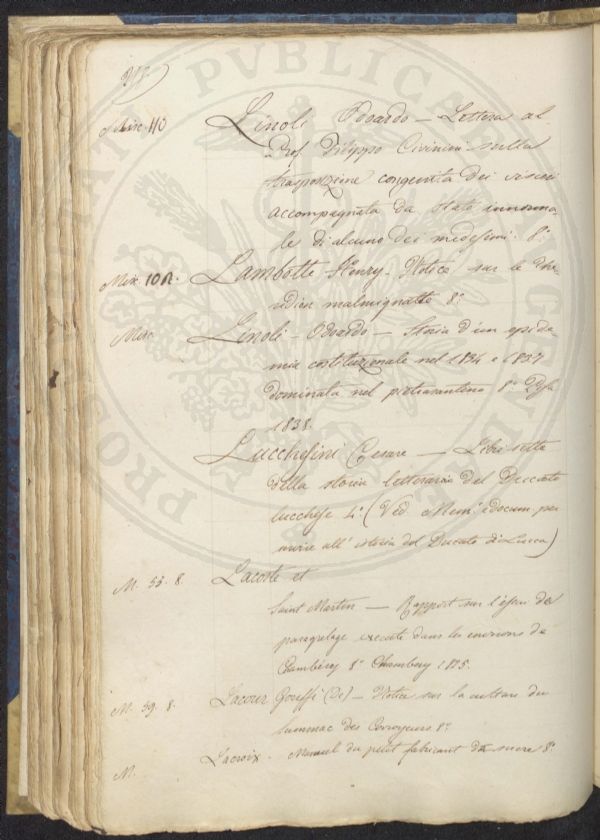 Misc. 110 Linoli Odoardo — Lettera al
Prof. Filippo Civinini sulla
trasposizione congenita dei visceri
accompagnata da stato innorma-
le di alcuno dei medesimi. 8.°
Misc. 102. Lambotte Henry. Notice sur le Thé-
ridion malmignatte 8.°
Misc. Linoli — Odoardo — Storia d'un epide-
mia costituzionale nel 1836 e 1837
dominata nel pietrasantino 8.° Pisa
1838.
Lucchesini Cesare — Libri sette
della storia letteraria del Ducato
lucchese 4.° (Ved. Mem. e docum. per
servire all' istoria del Ducato di Lucca)
M. 53. 8. Lacoste et
Saint Martin — Rapport sur l'essai de
paragrelage executé dans les environs de
Chambéry 8.° Chambery 1825.
M. 59. 8. Lacour Gouffé (De) — Notice sur la culture du
Summac des Corroyeurs 8.°
M. Lacroix. Manuel du petit fabricant de sucre 8.°